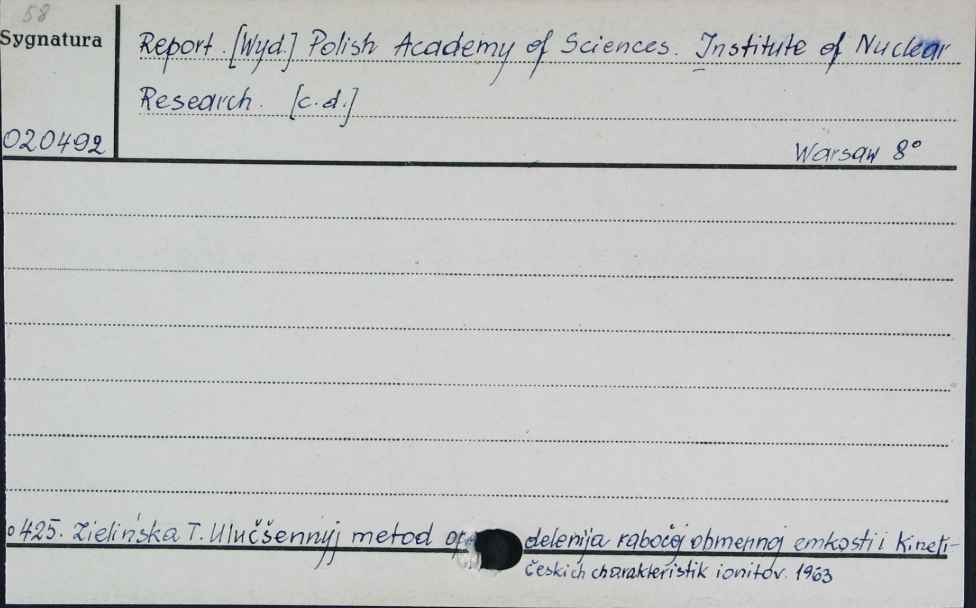 58
Sygnatura
Report. [Wyd.] Polish Academy of Sciences. Institute of Nuclear
Research. [c.d.]
020492
Warsaw 8°
o 425. Zielińska T. Ulučšennyj metod delenija rabočej obmennoj emkosti i kineti-
českich charakteristik ionitov. 1963